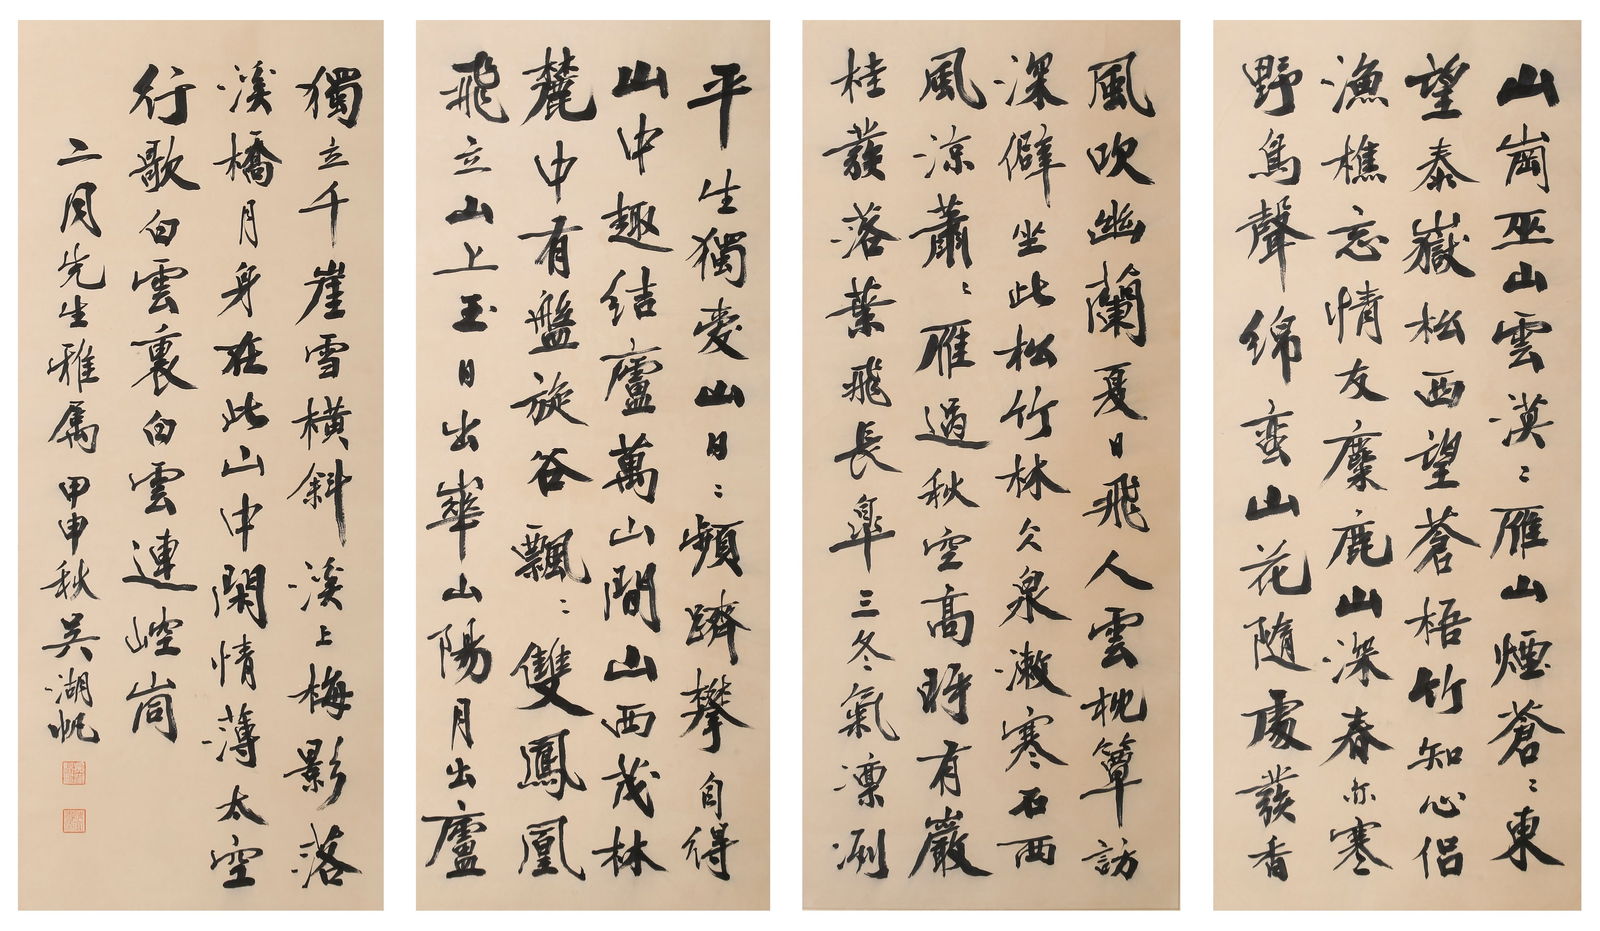 山崗巫山雲漠〻雁山煙蒼〻東
望泰嶽松西望蒼梧竹知心侣
漁樵忘情友麋鹿山深春亦寒
野鳥聲綿蛮山花隨處發香
風吹幽蘭夏日飛人雲枕簟訪
深僻坐此松竹林久泉漱寒石西
風涼蕭〻雁過秋空高時有巖
桂發落葉飛長皐三冬氣凛冽
平生獨愛山日〻頻躋攀自得
山中趣结廬萬山間山西茂林
麓中有盤旋谷飄〻雙鳳凰
飛立山上玉日出崋山陽月出廬
獨立千崖雪橫斜溪上梅影落
溪橋月身在此山中閑情薄太空
行歌白雲裏白雲連崆峒
二同先生雅属 甲申秋吴湖帆